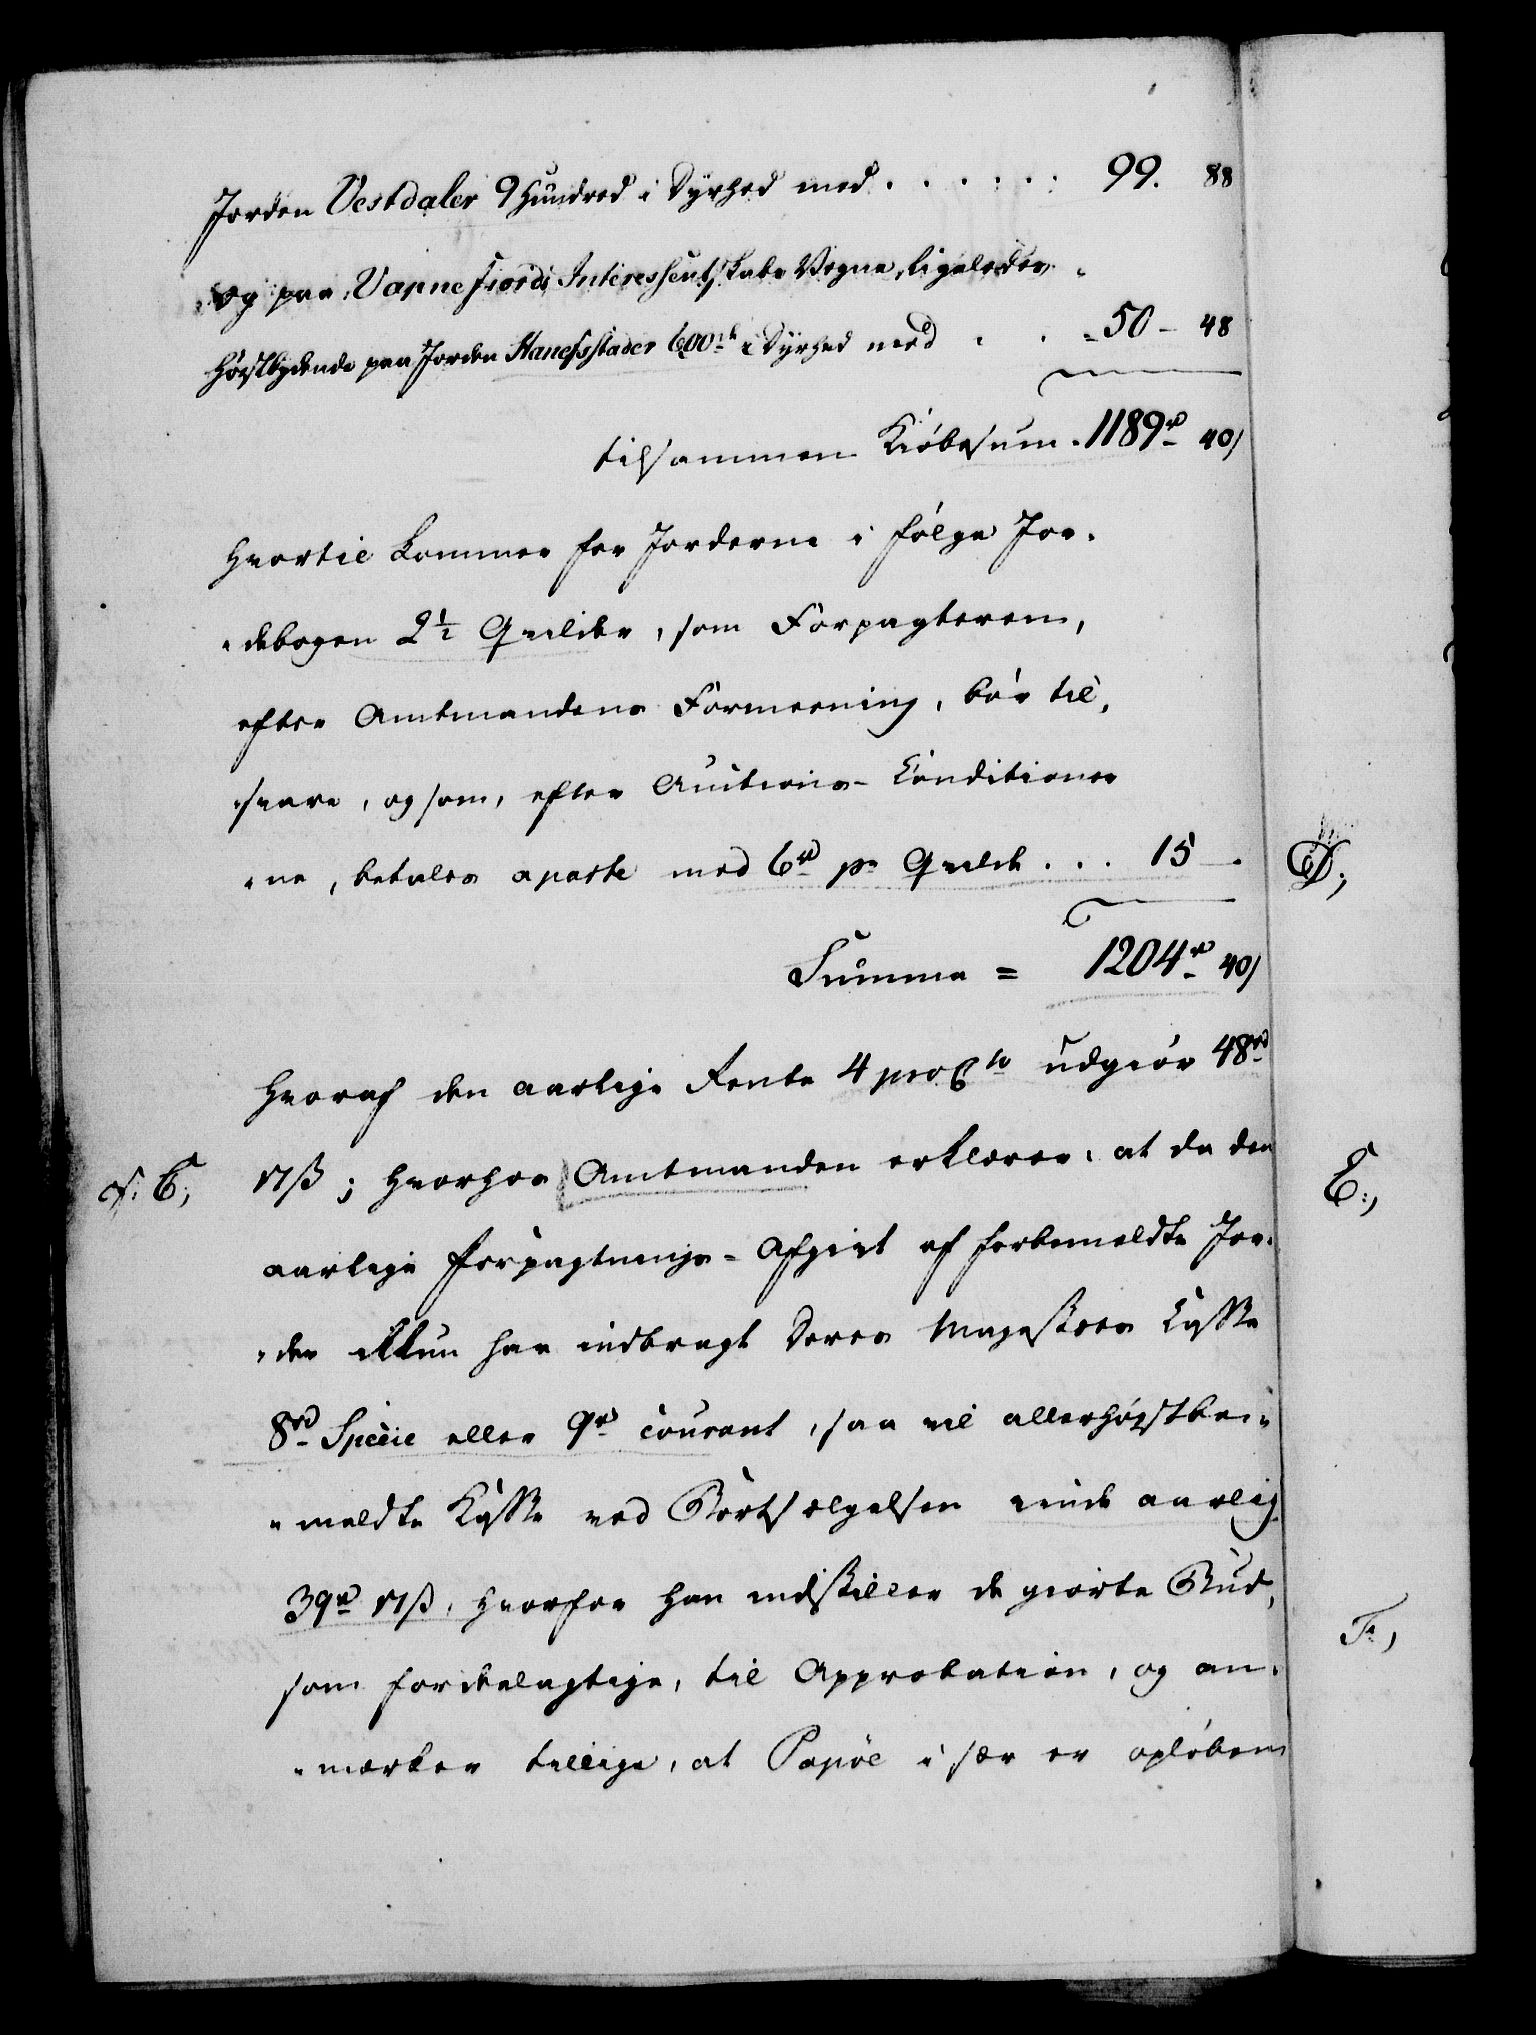 Jorden Vestdaler 9 Hundred i Dyrhed med . . . . . . 99. 88
og paa Vapnefiords Interessentskabs Vegne, ligeledes
høistbydende paa Jorden Hanefsstader 600de i Dyrhed med . . 50 - 48
tilsammen Kiøbesum . 1189rd 40/
hvortil kommer for Jorderne i følge Jor-
debogen 2½ Qvilder, som Forpagteren,
efter Amtmandens Formeening, bør til-
svare, og som, efter Auctions-Conditioner
ne, betales aparte med 6rd pr Qvilde . . . 15 - .
Summa = 1204rd 40/
hvoraf den aarlige Rente 4 pro Cto udgiør 48rd
17ß; hvorhos Amtmanden erklærer: at da den
aarlige Forpagtnings-Afgivt af forbemeldte Jor-
der ikkun har indbragt Deres Majestæts Casse
8rd Specie eller 9rd courant, saa vil allerhøistbe-
meldte Casse ved Bortsælgelsen vinde aarlig
39rd 17ß, hvorfor han indstiller de giorte Bud,
som fordelagtige, til Approbation, og an-
mærker tillige, at Papøe i sær er opløben
D;
E;
F;